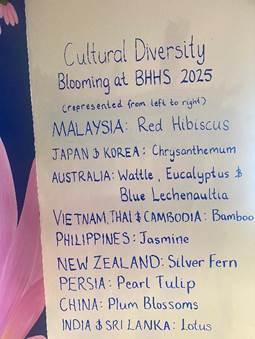 Cultural Diversity
Blooming at BHHS 2025
(represented from left to right)
MALAYSIA: Red Hibiscus
JAPAN & KOREA: Chrysanthemum
AUSTRALIA: Wattle, Eucalyptus &
Blue Lechenaultia
VIETNAM, THAI & CAMBODIA: Bamboo
PHILIPPINES: Jasmine
NEW ZEALAND: Silver Fern
PERSIA: Pearl Tulip
CHINA: Plum Blossoms
INDIA & SRI LANKA: Lotus